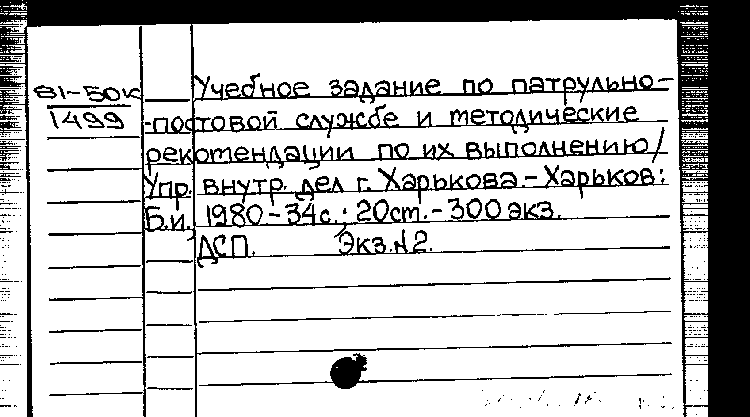 81-50к
1499
Учебное задание по патрульно-
-постовой службе и методические
рекомендации по их выполнению/
Упр. внутр. дел г. Харькова. - Харьков:
Б.и., 1980 - 34с.; 20ст. - 300 экз.
ДСП. Экз. №2.